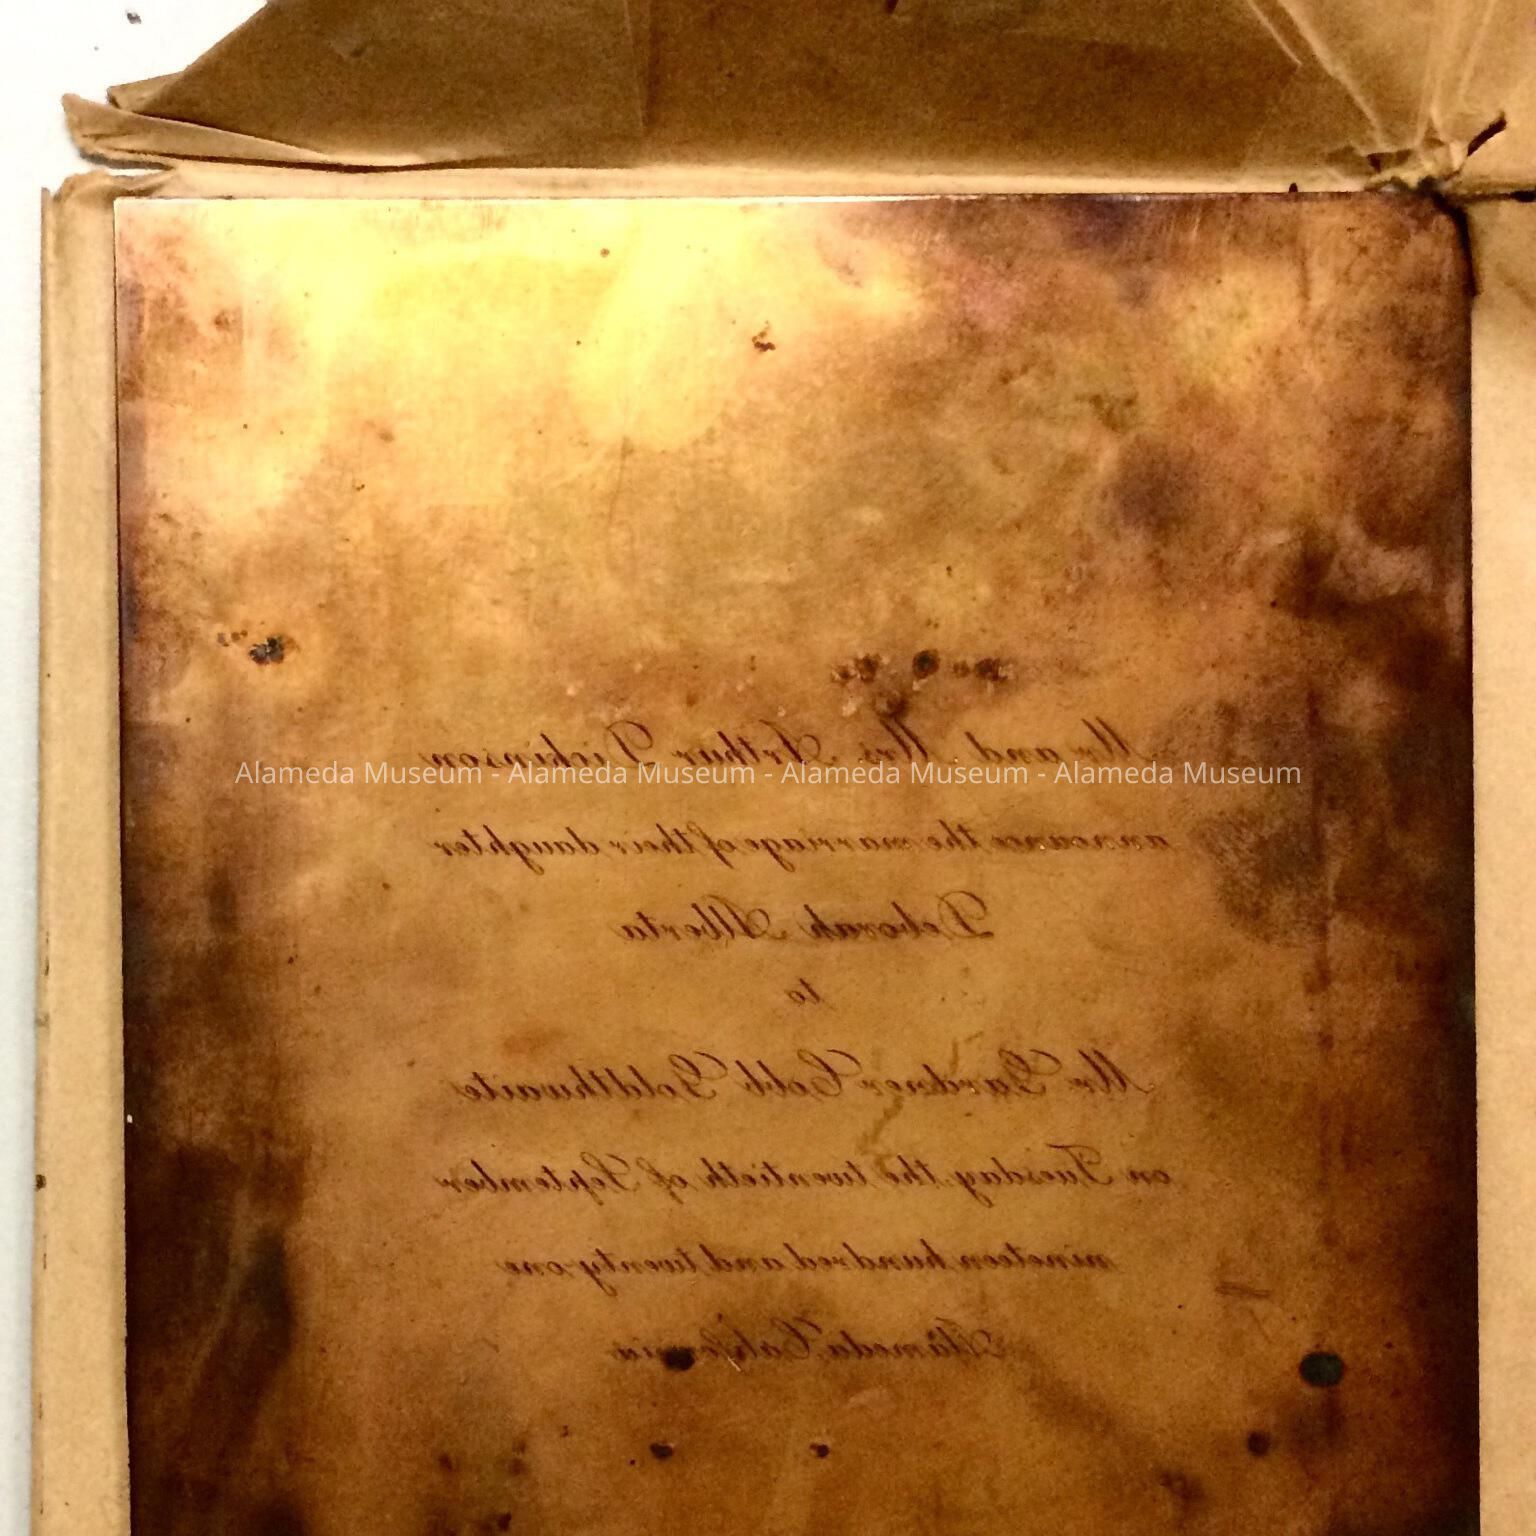 Mr. and Mrs. Arthur Dickinson
Alameda Museum - Alameda Museum - Alameda Museum - Alameda Museum
announce the marriage of their daughter
Deborah Alberta
to
Mr. Gardner Cobb Goldthwaite
on Tuesday, the twentieth of September
nineteen hundred and twenty one
Alameda, California